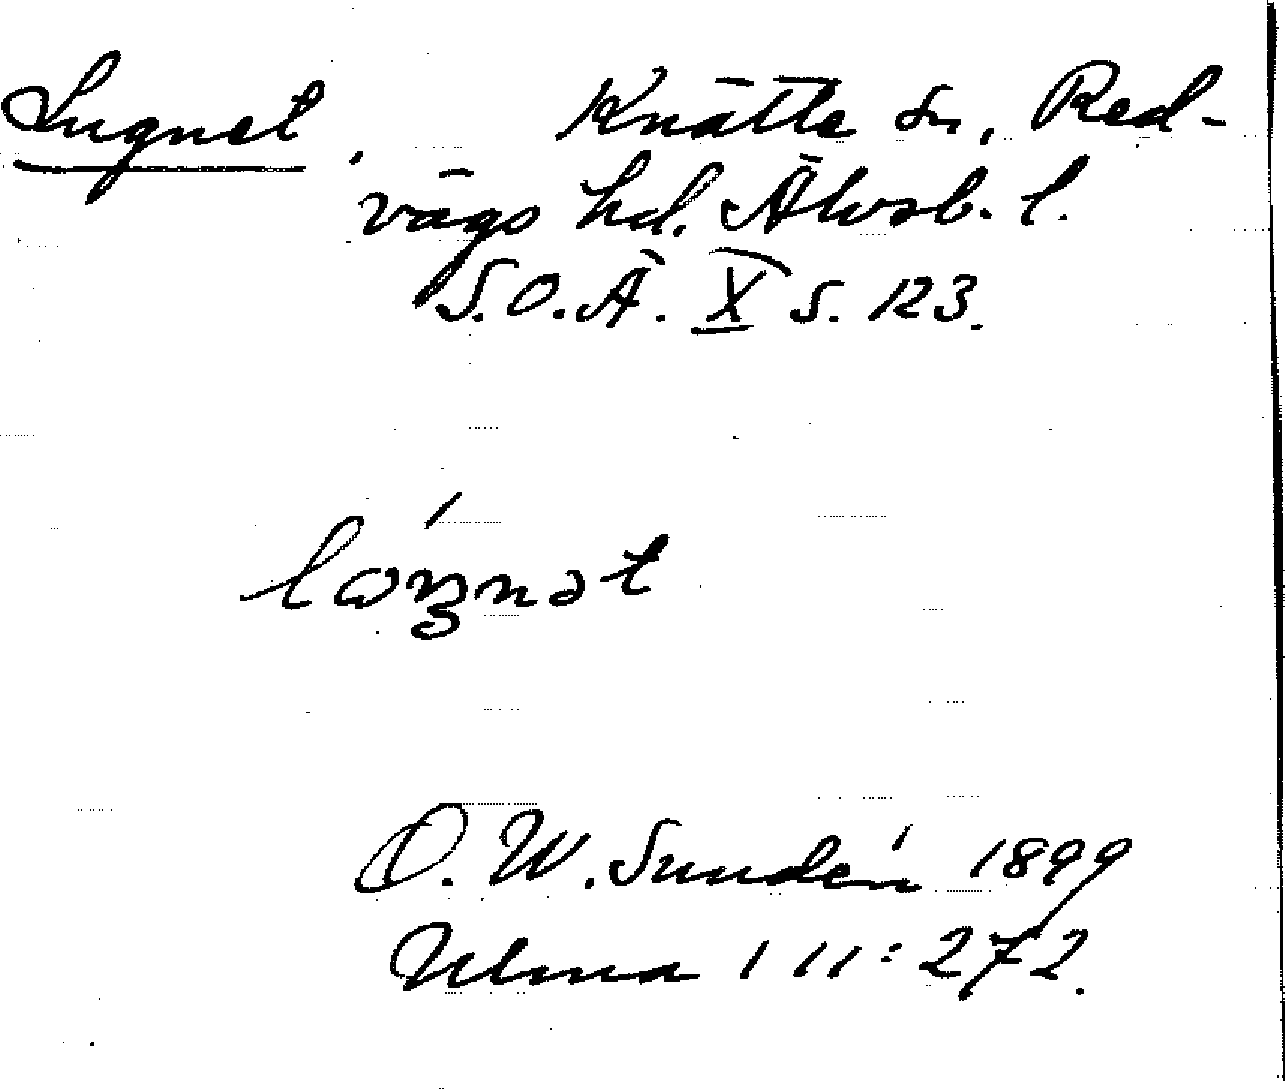 Lugnet. Knätte sn, Red-
vägs hd. Älvsb. l.
S.O.Ä. X s. 123.
D. W. Sundén 1899
Ulma 111:272.